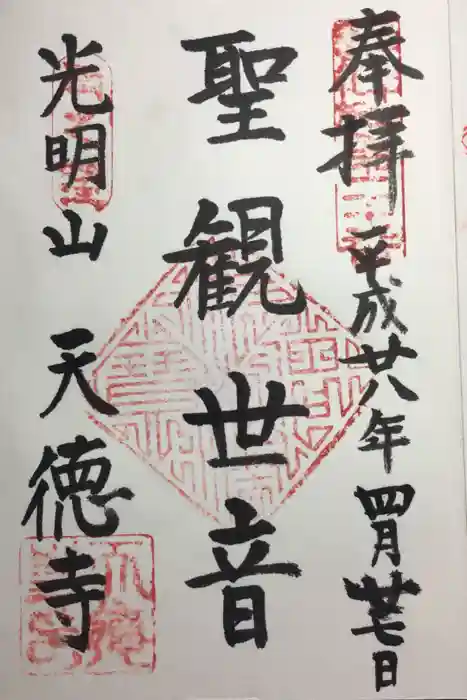 奉拝 平成廿八年 四月廿七日
聖観世音
光明山 天徳寺